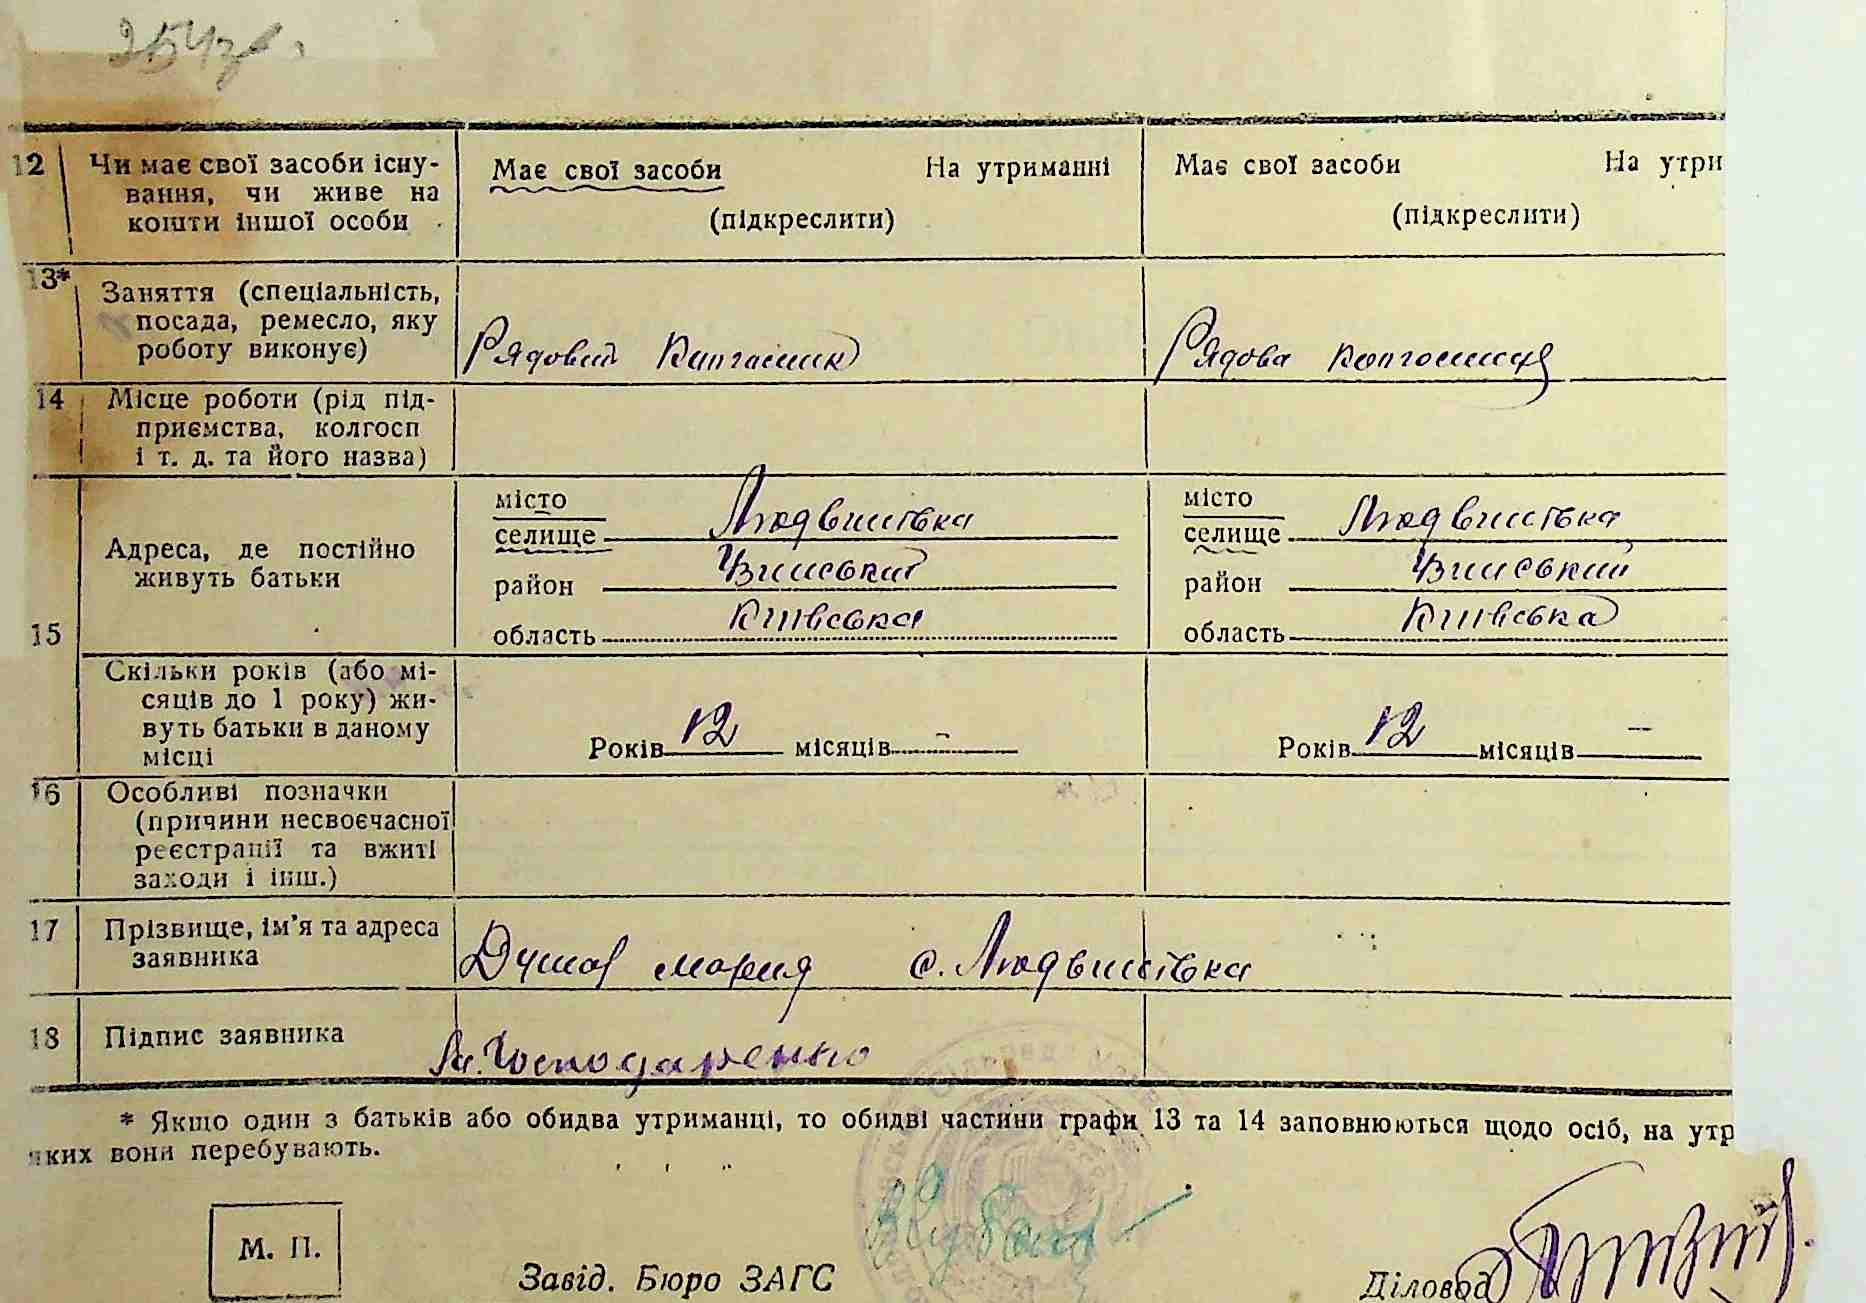 12 Чи має свої засоби існу-
вання, чи живе на
кошти іншої особи
Має свої засоби На утриманні
(підкреслити)
Має свої засоби На утри
(підкреслити)
13* Заняття (спеціальність,
посада, ремесло, яку
роботу виконує)
Рядовий Колгосник
Рядова колгосниця
14 Місце роботи (рід під-
приємства, колгосп
і т. д. та його назва)
15 Адреса, де постійно
живуть батьки
місто
селище Людвинівка
район
область Київська
місто
селище Людвинівка
район
область Київська
Скільки років (або мі-
сяців до 1 року) жи-
вуть батьки в даному
місці
Років 12 місяців -
Років 12 місяців -
16 Особливі позначки
(причини несвоєчасної
реєстрації та вжиті
заходи і інш.)
17 Прізвище, ім'я та адреса
заявника
Мария с. Людвинівка
18 Підпис заявника
Господаренко
* Якщо один з батьків або обидва утриманці, то обидві частини графи 13 та 14 заповнюються щодо осіб, на утр
яких вони перебувають.
М. П.
Завід. Бюро ЗАГС
Діловод